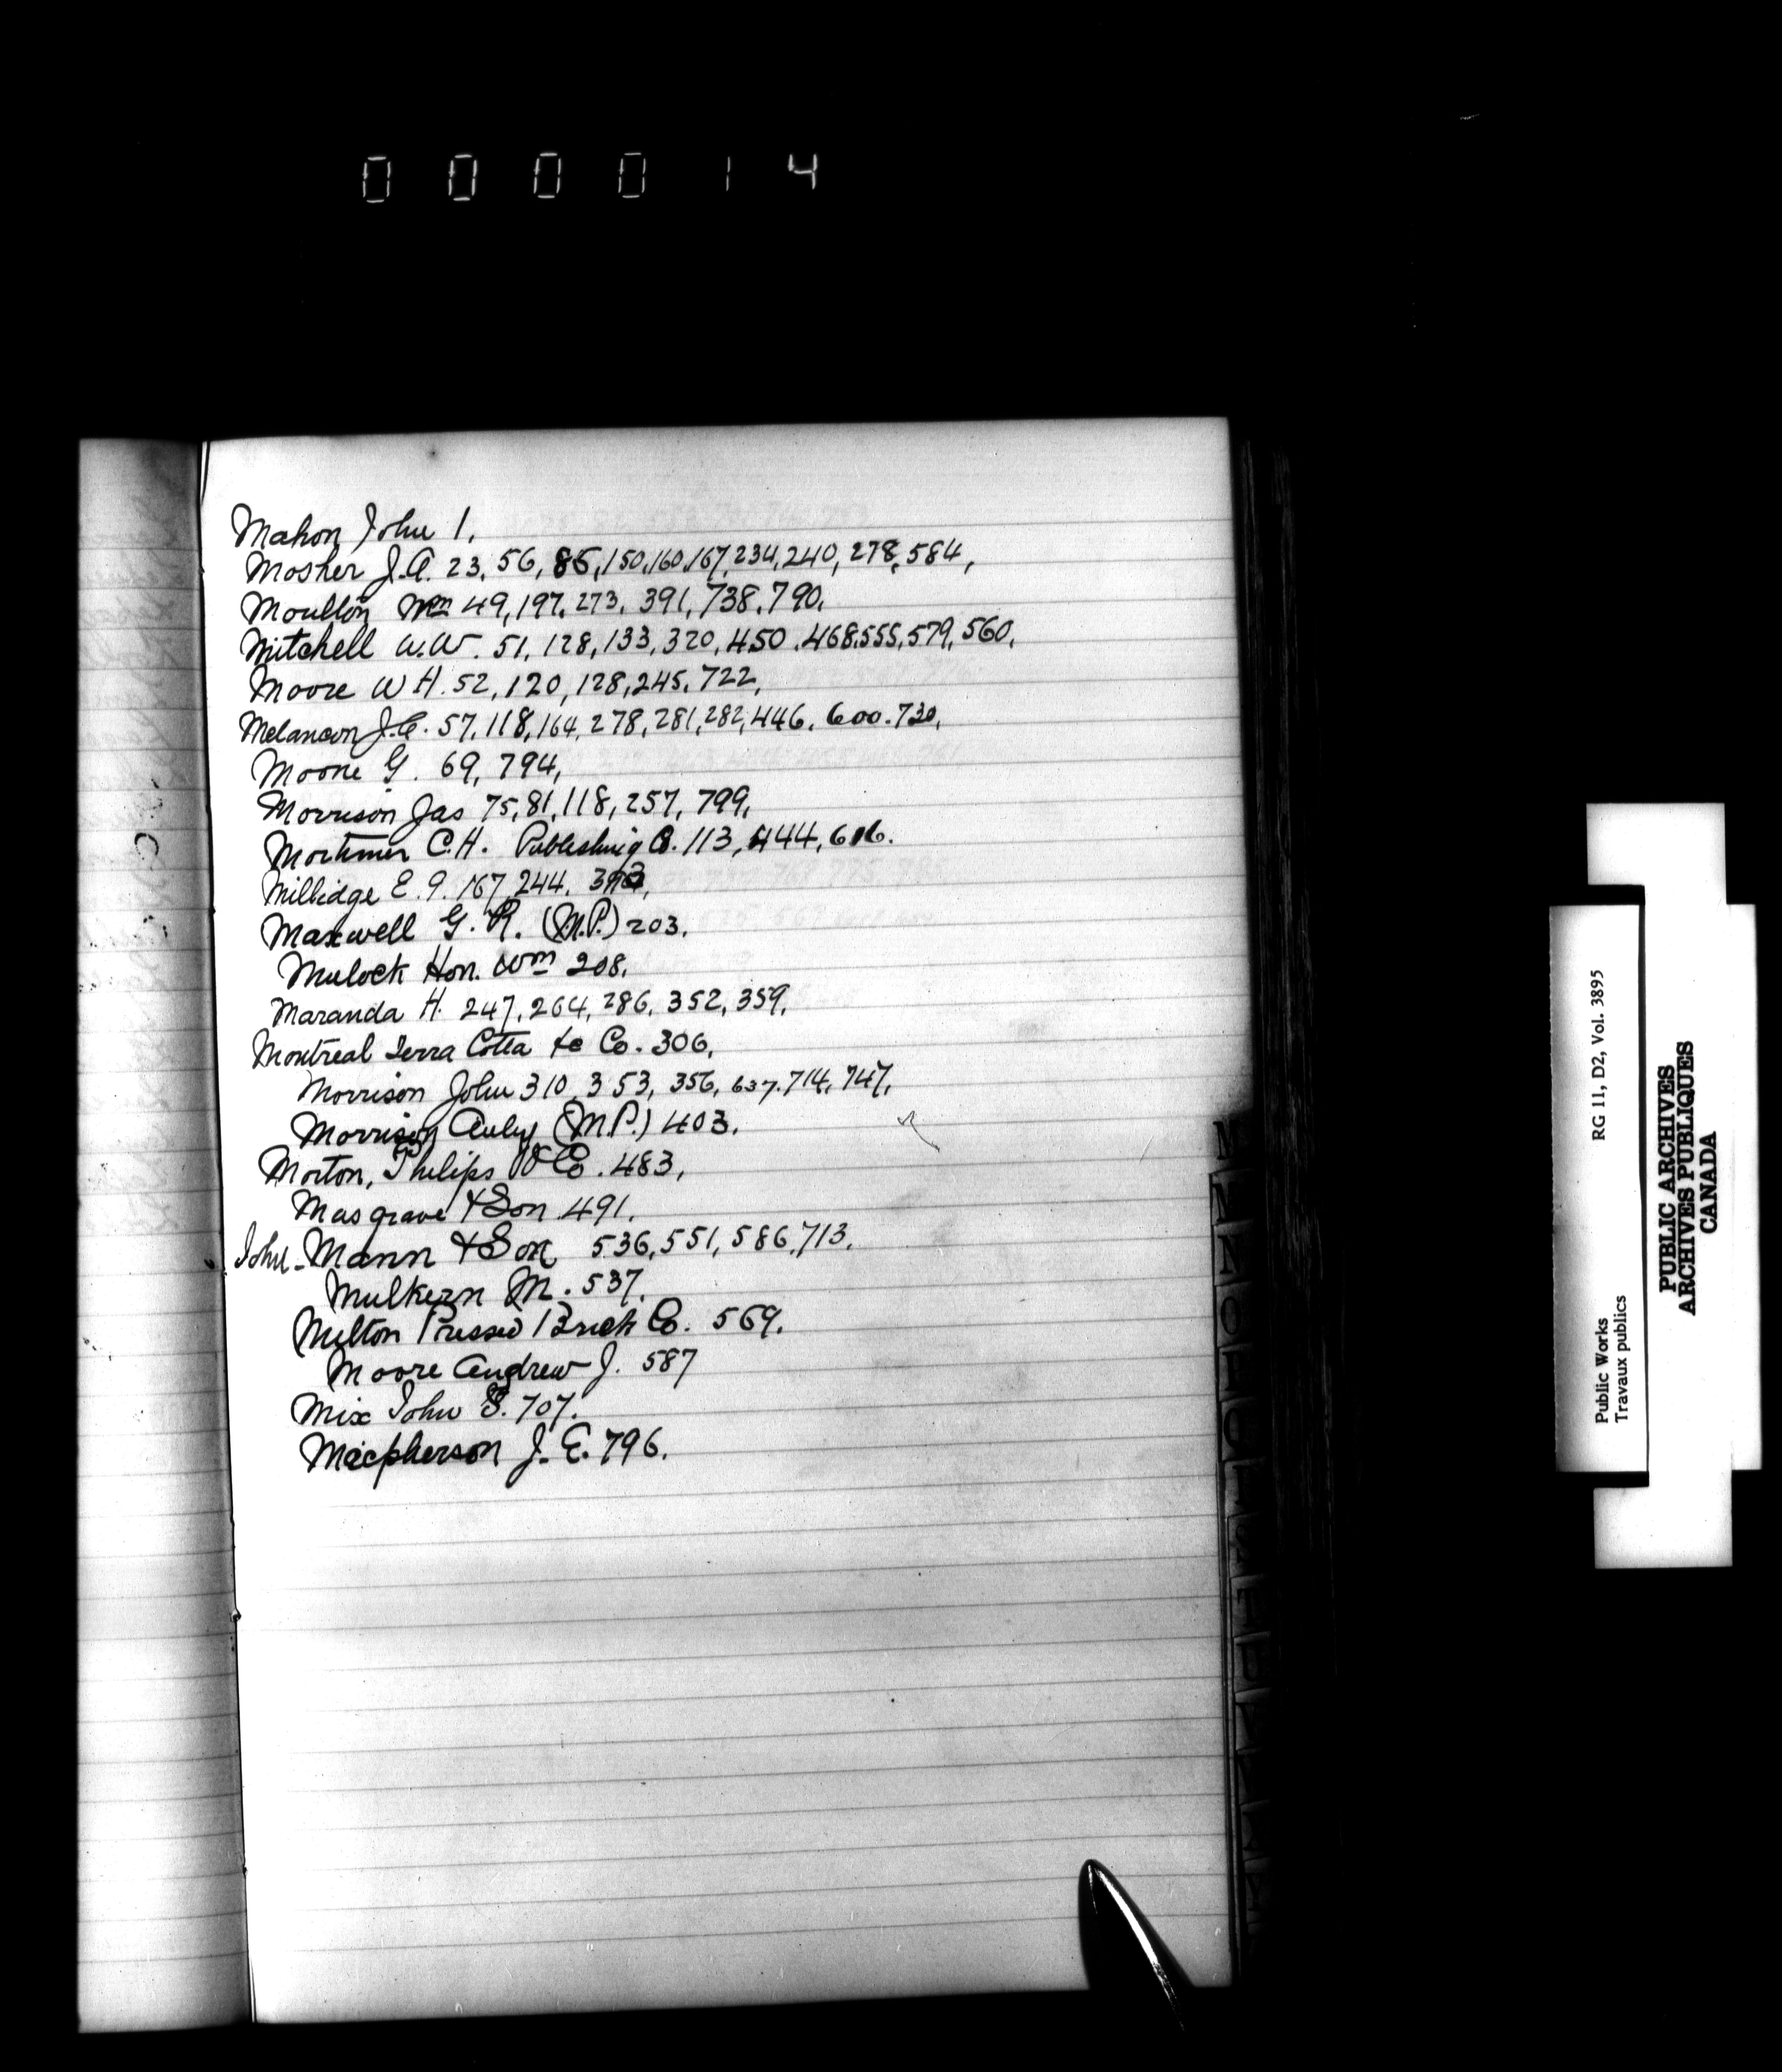 000014
Mahon John 1.
Mosher J.A. 23, 56, 85, 150, 160, 167, 234, 240, 278, 584,
Moulton Wm 49, 197, 273, 391, 738, 790.
Mitchell W.W. 51, 128, 133, 320, 450, 468, 555, 579, 560.
Moore W H. 52, 120, 128, 245, 722,
Melancon J.C. 57, 118, 164, 278, 281, 282, 446, 600, 730,
Moore G. 69, 794,
Morrison Jas 75, 81, 118, 257, 799,
Mortimer C.H. Publishing Co. 113, 444, 616.
Millidge E. 9. 167, 244,
Maxwell G. R. (M.P.) 203.
Mulock Hon. Wm 208.
Maranda H. 247, 264, 286, 352, 359,
Montreal Terra Cotta &c Co. 306,
Morrison John 310, 353, 356, 637, 714, 747,
Morrison Auly (M.P.) 403.
Morton, Philips & Co. 483,
Masgrave & Son 491.
John Mann & Son 536, 551, 586, 713.
Mulkern M. 537.
Milton Pressed Brick Co. 569.
Moore Andrew J. 587
Mix John S. 707.
Macpherson J. E. 796.
Public Works
Travaux publics
RG 11, D2, Vol. 3895
PUBLIC ARCHIVES
ARCHIVES PUBLIQUES
CANADA